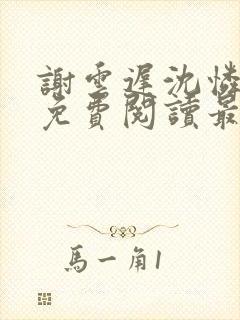 謝雲遲沈憐
免費閱讀最
馬一角1